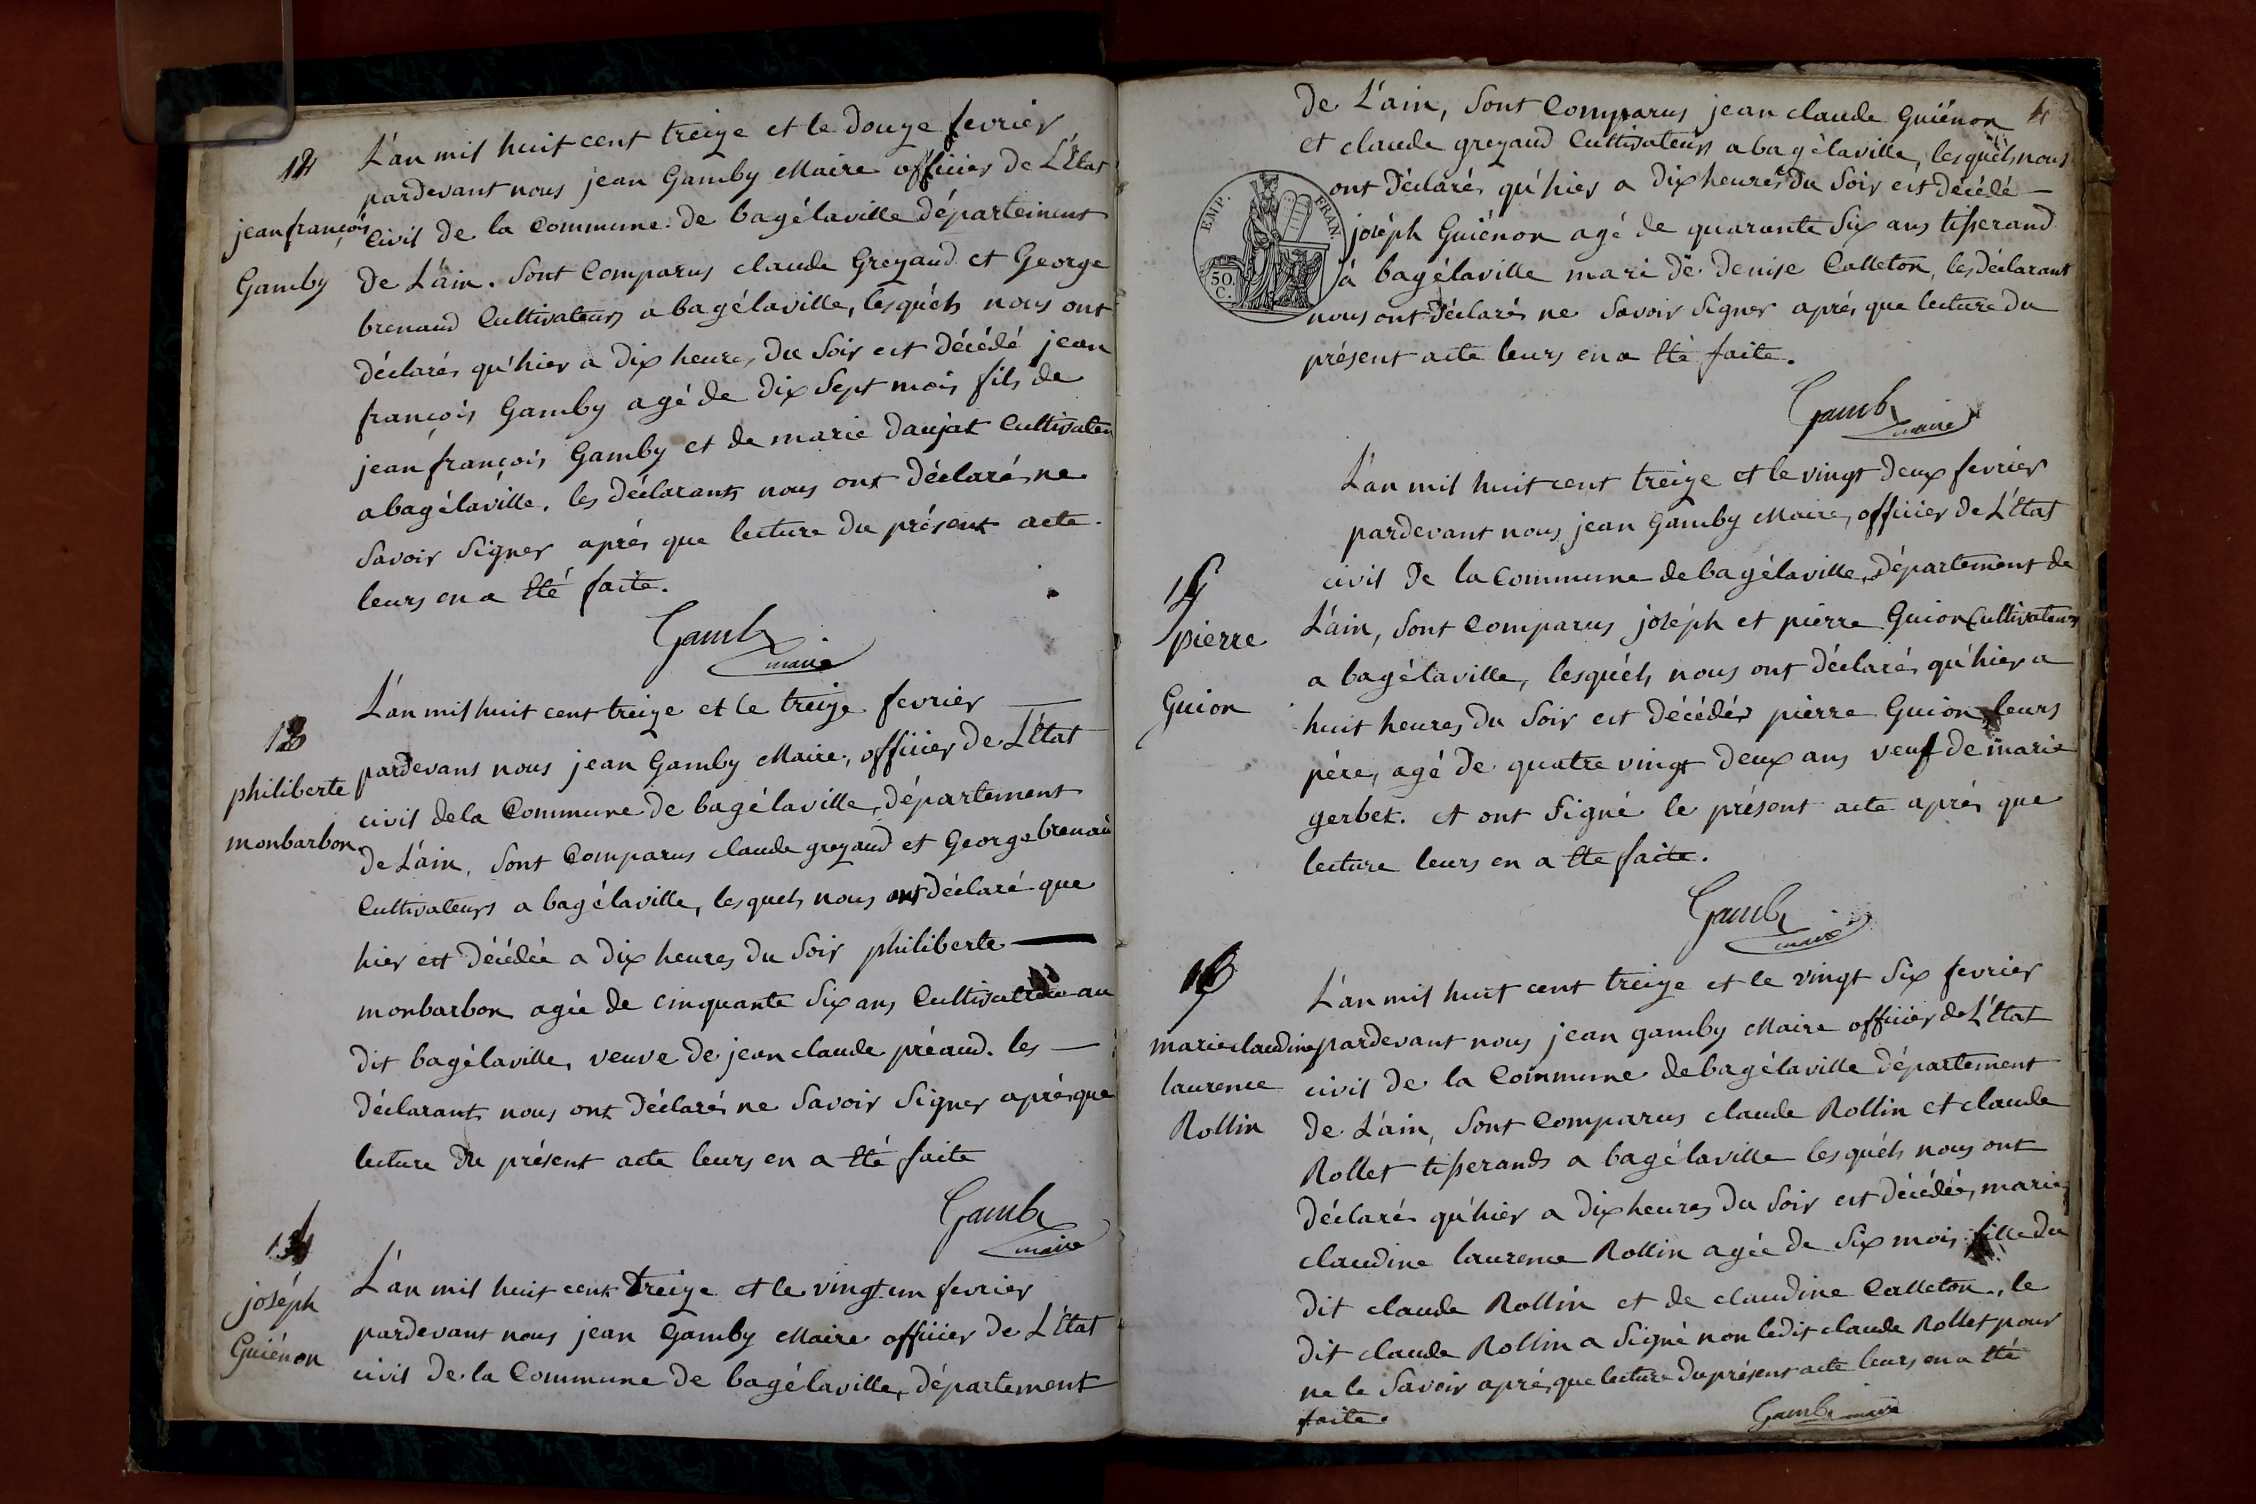 12
jean françois
Gamby
L'an mil huit cent treize et le douze fevrier
pardevant nous jean Gamby Maire officier de L'État
Civil de la Commune de bagélaville département
De L'ain. Sont Comparus claude Greyaud et George
brenaud Cultivateurs a bagélaville, lesquéls nous ont
déclarés qu'hier a dix heures du Soir est décédé jean
françois Gamby agé de dix Sept mois fils de
jean françois Gamby et de marie daujat Cultivateu
a bagélaville. les déclarants nous ont déclarés ne
Savoir Signer aprés que lecture du présent acte
leurs en a été faite.
Gamby
maire
13
philiberte
monbarbon
L'an mil huit cent treize et le treize fevrier
pardevans nous jean Gamby Maire, officier de L'État
civil de la Commune de bagélaville, département
de L'ain, Sont Comparus claude greyaud et George brenau
Cultivateurs a bagélaville, lesquels nous ont déclaré que
hier est décédée a dix heures du Soir philiberte
monbarbon agée de cinquante Six ans Cultivatrice au
dit bagélaville, veuve de jean claude préaud. les
déclarants nous ont déclarés ne Savoir Signer aprés que
lecture du présent acte leurs en a été faite
Gamby
maire
14
joséph
Guiénon
L'an mil huit cent treize et le vingt un fevrier
pardevant nous jean Gamby Maire officier de L'État
civil de la Commune de bagélaville, département
4
de L'ain, Sont Comparus jean claude Guiénon
et claude greyaud Cultivateurs a bagélaville, lesquels nous
ont déclarés qu'hier a dix heures du Soir est décédé
joséph Guiénon agé de quarante Six ans tisserand
à bagélaville mari de denise Calleton, les déclarant
nous ont déclarés ne Savoir Signer aprés que lecture du
présent acte leurs en a été faite.
EMP. FRAN.
50.
C.
Gamby
maire
15
pierre
Guion
L'an mil huit cent treize et le vingt deux fevrier
pardevant nous jean Gamby Maire, officier de L'État
civil de la Commune de bagélaville, département de
L'ain, Sont Comparus joséph et pierre Guion Cultivateurs
a bagélaville, lesquéls nous ont déclarés qu'hier a
huit heures du Soir est décédés pierre Guion leurs
pére, agé de quatre vingt deux ans veuf de marie
gerbet. et ont Signé le présent acte aprés que
lecture leurs en a été faite.
Gamby
maire
16
marie claudine
laurence
Rollin
L'an mil huit cent treize et le vingt Six fevrier
pardevant nous jean gamby Maire officier de L'État
civil de la Commune de bagélaville département
de L'ain, Sont Comparus claude Rollin et claude
Rollet tisserands a bagélaville lesquéls nous ont
déclarés qu'hier a dix heures du Soir est décédée, marie
claudine laurence Rollin agée de Six mois fille du
dit claude Rollin et de claudine Calleton, le
dit claude Rollin a Signé non ledit claude Rollet pour
ne le Savoir aprés que lecture du présent acte leurs en a été
faite.
Gamby maire